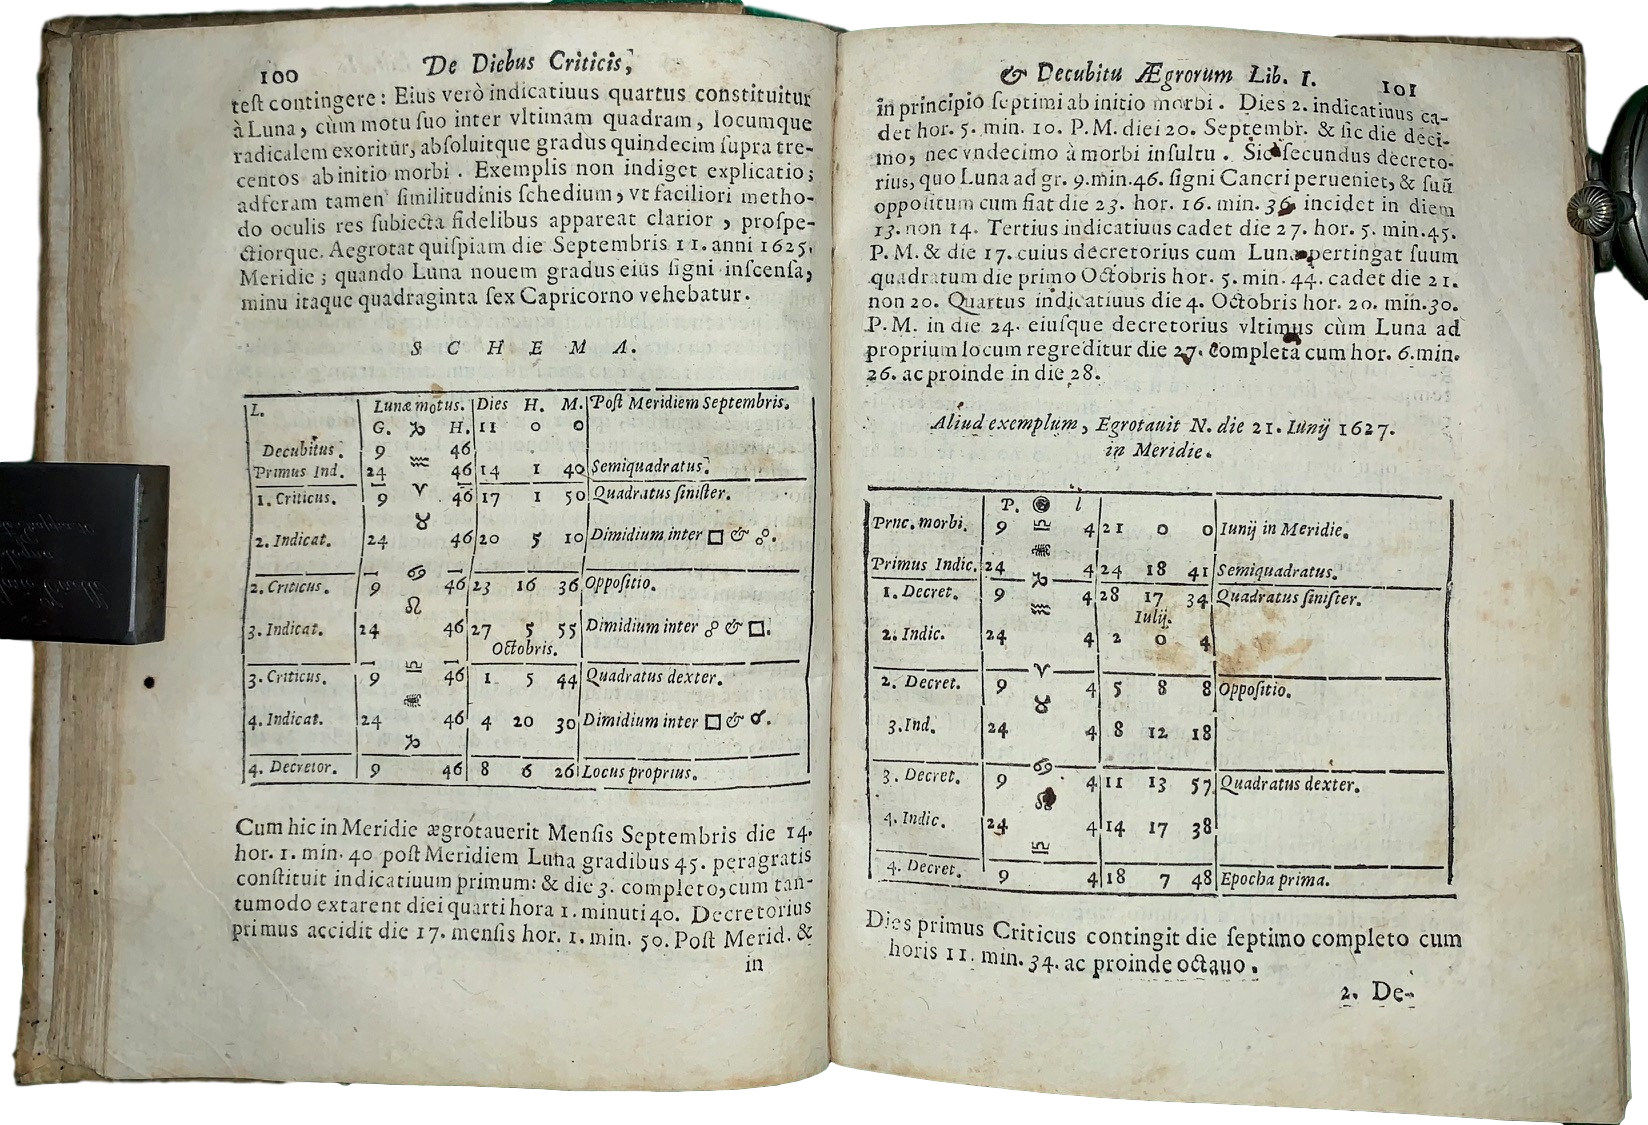 100
De Diebus Criticis,
test contingere: Eius verò indicatiuus quartus constituitur
à Luna, cùm motu suo inter vltimam quadram, locumque
radicalem exoritur, absoluitque gradus quindecim supra tre-
centos ab initio morbi. Exemplis non indiget explicatio;
adferam tamen similitudinis schedium, vt faciliori metho-
do oculis res subiecta fidelibus appareat clarior, prospe-
ctiorque. Aegrotat quispiam die Septembris 11. anni 1625.
Meridie; quando Luna nouem gradus eius signi inscensa,
minu itaque quadraginta sex Capricorno vehebatur.
S C H E M A.
L. Lunæ motus. Dies H. M. Post Meridiem Septembris.
G. ♑ H. 11 0 0
Decubitus. 9 46
♒
Primus Ind. 24 46 14 1 40 Semiquadratus.
1. Criticus. 9 ♈ 46 17 1 50 Quadratus sinister.
♉
2. Indicat. 24 46 20 5 10 Dimidium inter □ & ☍.
♋
2. Criticus. 9 46 23 16 36 Oppositio.
♌
3. Indicat. 24 46 27 5 55 Dimidium inter ☍ & □.
Octobris.
♎
3. Criticus. 9 46 1 5 44 Quadratus dexter.
♏
4. Indicat. 24 46 4 20 30 Dimidium inter □ & ☌.
♑
4. Decretor. 9 46 8 6 26 Locus proprius.
Cum hic in Meridie ægrotauerit Mensis Septembris die 14.
hor. 1. min. 40 post Meridiem Luna gradibus 45. peragratis
constituit indicatiuum primum: & die 3. completo, cum tan-
tumodo extarent diei quarti hora 1. minuti 40. Decretorius
primus accidit die 17. mensis hor. 1. min. 50. Post Merid. &
in
& Decubitu Ægrorum Lib. I. 101
in principio septimi ab initio morbi. Dies 2. indicatiuus ca-
det hor. 5. min. 10. P.M. diei 20. Septembr. & sic die deci-
mo, nec vndecimo à morbi insultu. Sic secundus decreto-
rius, quo Luna ad gr. 9. min. 46. signi Cancri perueniet, & suũ
oppositum cum fiat die 23. hor. 16. min. 36. incidet in diem
13. non 14. Tertius indicatiuus cadet die 27. hor. 5. min. 45.
P.M. & die 17. cuius decretorius cum Luna pertingat suum
quadratum die primo Octobris hor. 5. min. 44. cadet die 21.
non 20. Quartus indicatiuus die 4. Octobris hor. 20. min. 30.
P.M. in die 24. eiusque decretorius vltimus cùm Luna ad
proprium locum regreditur die 27. completa cum hor. 6. min.
26. ac proinde in die 28.
Aliud exemplum, Egrotauit N. die 21. Iunij 1627.
in Meridie.
P. l
Prnc. morbi. 9 ♎ 4 21 0 0 Iunij in Meridie.
♏
Primus Indic. 24 4 24 18 41 Semiquadratus.
♑
1. Decret. 9 4 28 17 34 Quadratus sinister.
♒ Iulij.
2. Indic. 24 4 2 0 4
♈
2. Decret. 9 4 5 8 8 Oppositio.
♉
3. Ind. 24 4 8 12 18
♋
3. Decret. 9 4 11 13 57 Quadratus dexter.
♌
4. Indic. 24 4 14 17 38
♎
4. Decret. 9 4 18 7 48 Epocha prima.
Dies primus Criticus contingit die septimo completo cum
horis 11. min. 34. ac proinde octauo.
2. De-